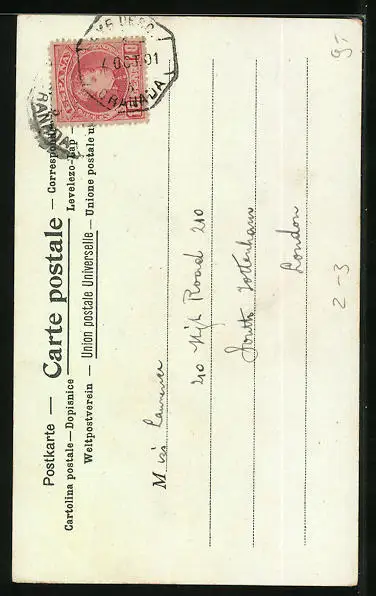 Postkarte — Carte postale — Correspon
Cartolina postale — Dopisnice Levelezo-Lap —
Weltpostverein — Union postale Universelle — Unione postale u
4 OCT 01
GRANADA
Miss Lawrence
210 High Road 210
South Tottenham
London
2-3